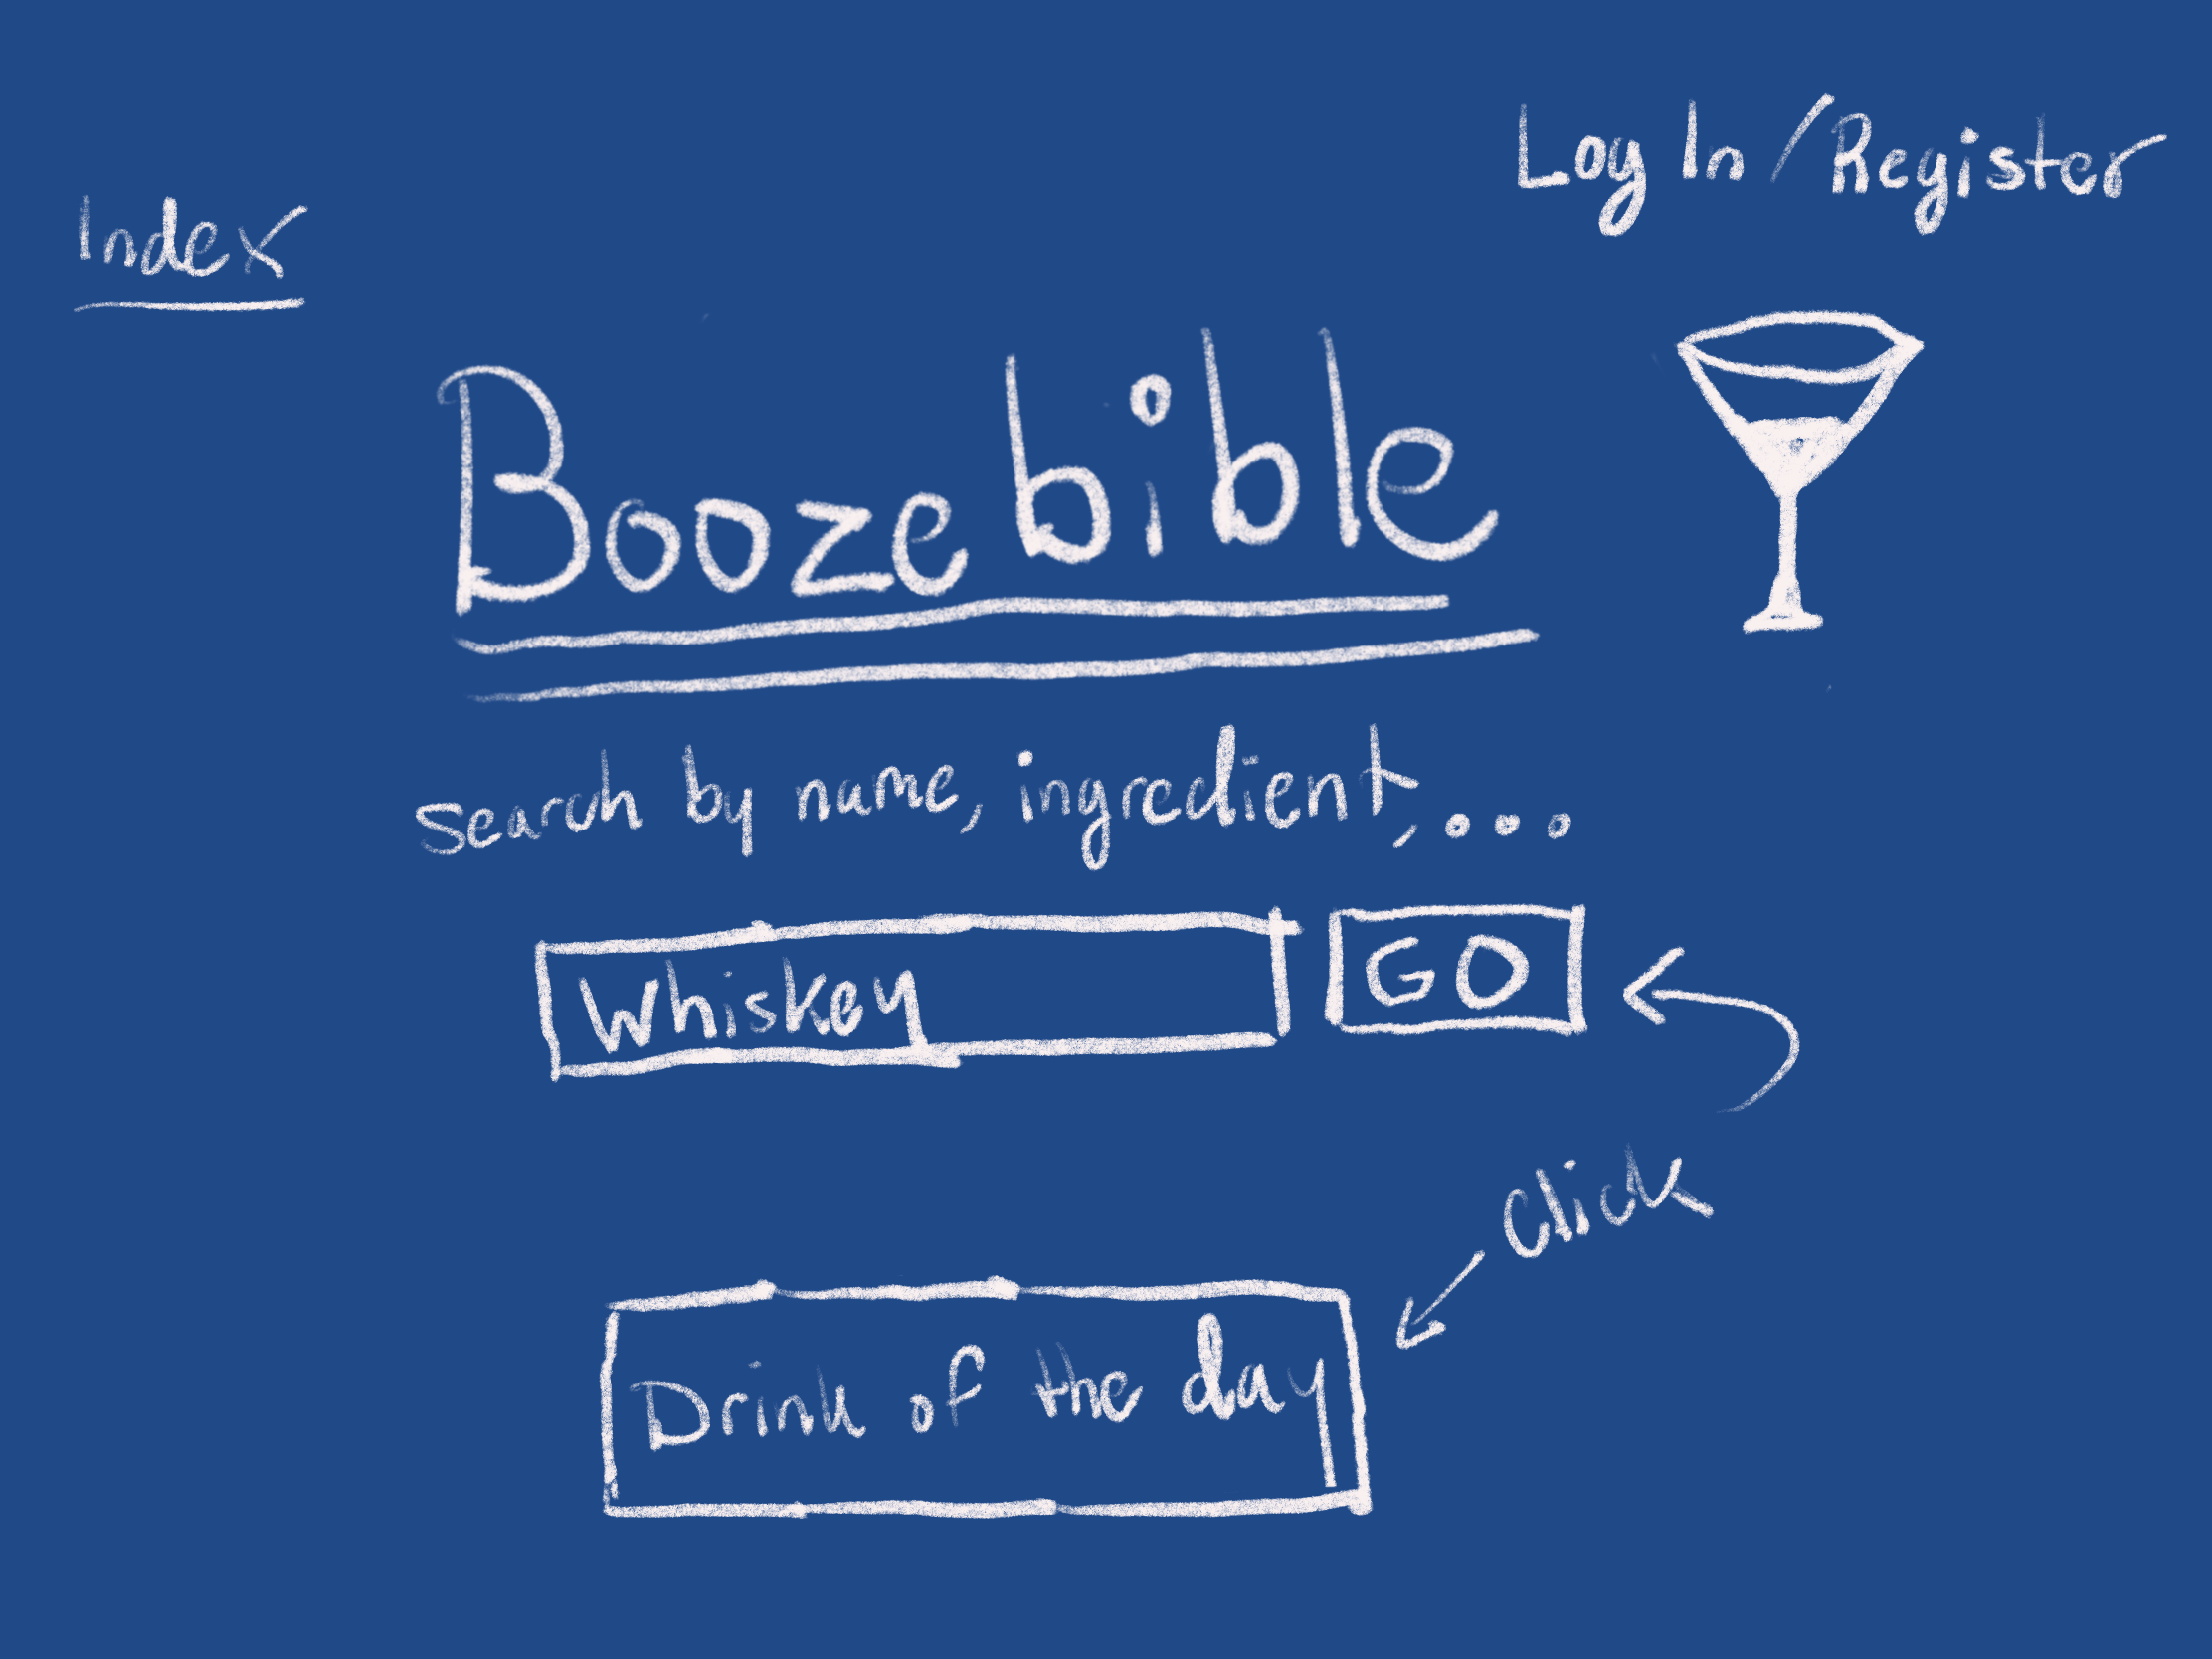 Log In / Register
Index
Boozebible
Search by name, ingredient, ...
Whiskey
GO
Click
Drink of the day